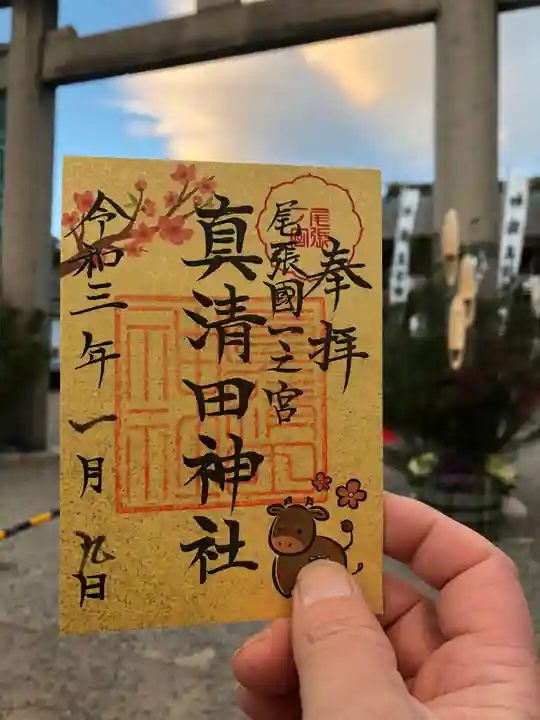 奉拝
尾張國一之宮
尾張
真清田神社
令和三年一月九日